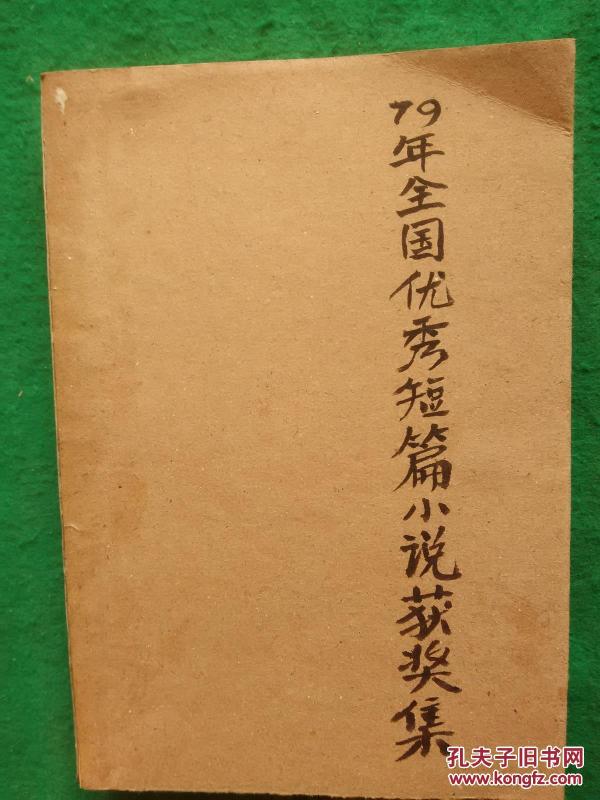 79年全国优秀短篇小说获奖集
孔夫子旧书网
www.kongfz.com